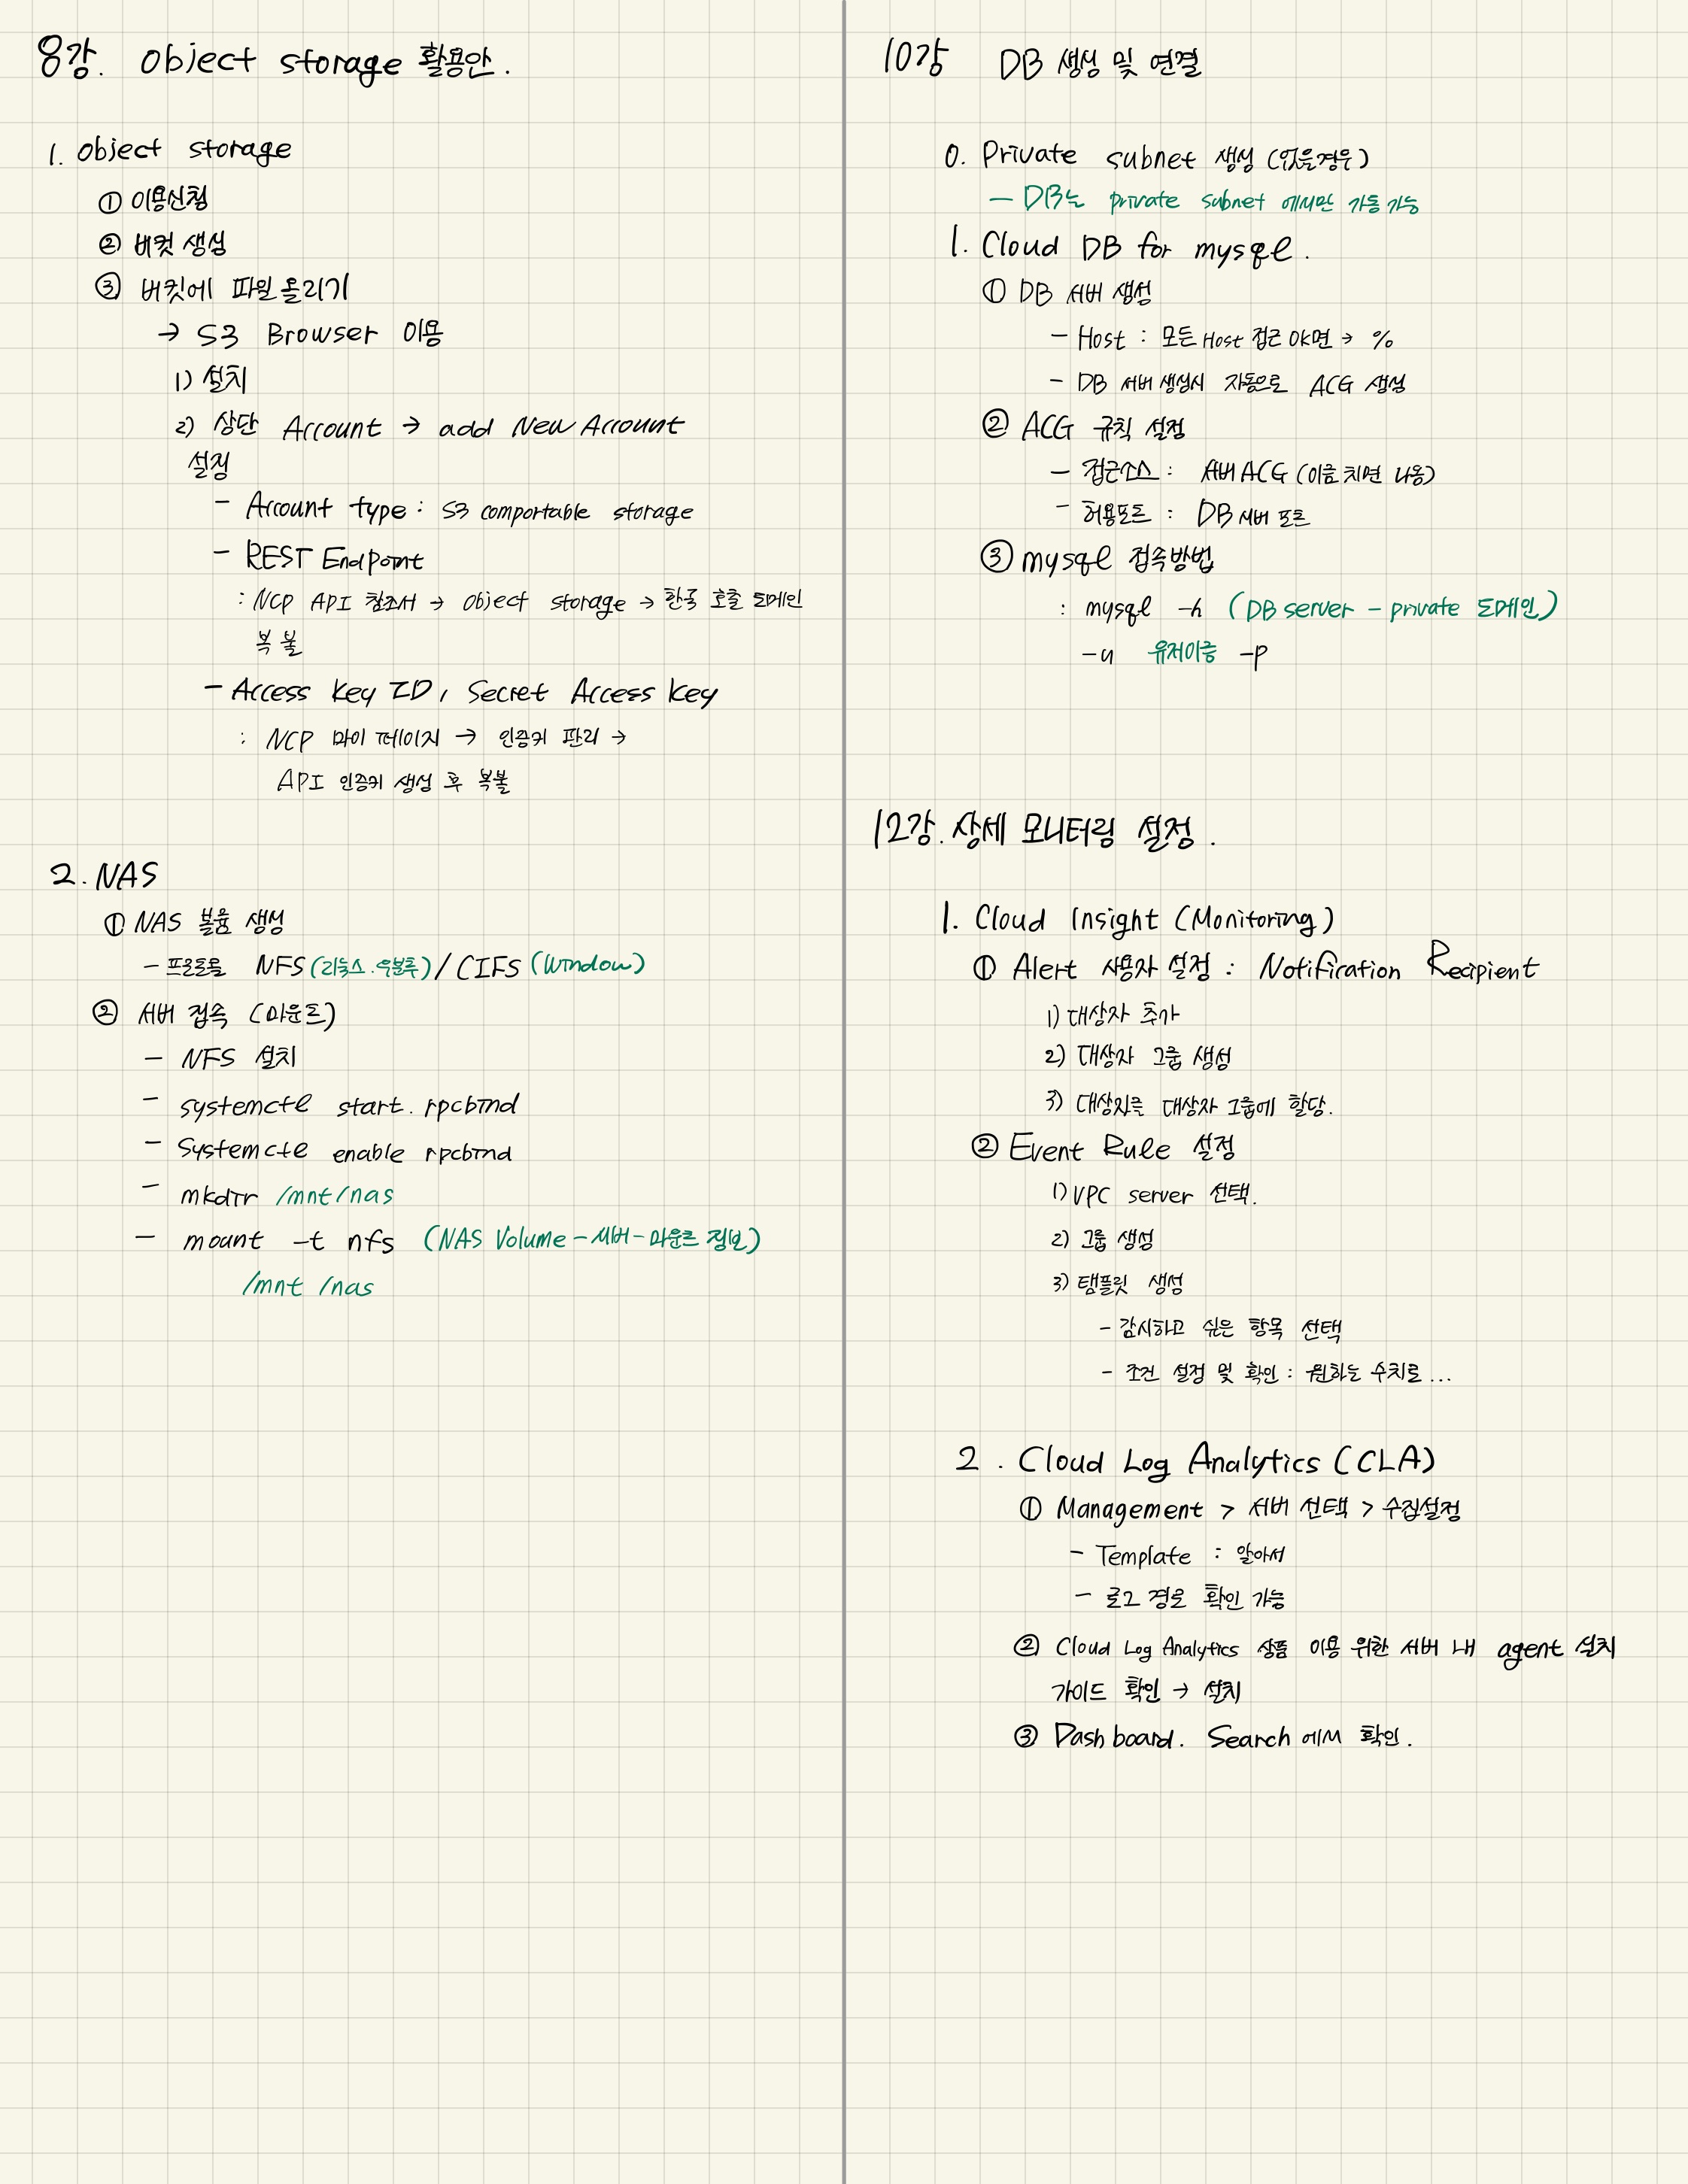 8강. Object storage 활용안.
1. Object storage
① 이용신청
② 버컷 생성
③ 버킷에 파일 올리기
→ S3 Browser 이용
1) 설치
2) 상단 Account → add New Account
설정
- Account type : S3 comportable storage
- REST Endpoint
: NCP API 참조서 → Object storage → 한국 호출 도메인
복 붙
- Access Key ID, Secret Access Key
: NCP 마이 페이지 → 인증키 관리 →
API 인증키 생성 후 복붙
2. NAS
① NAS 볼륨 생성
- 프로토콜 NFS (리눅스. 우분투) / CIFS (Window)
② 서버 접속 (마운트)
- NFS 설치
- systemctl start. rpcbind
- Systemctl enable rpcbind
- mkdir /mnt/nas
- mount -t nfs (NAS Volume - 서버 - 마운트 정보)
/mnt /nas
10강 DB 생성 및 연결
0. Private subnet 생성 (없을경우)
- DB는 private subnet 에서만 가동 가능
1. Cloud DB for mysql.
① DB 서버 생성
- Host : 모든 Host 접근 OK면 → %
- DB 서버 생성시 자동으로 ACG 생성
② ACG 규칙 설정
- 접근소스 : 서버 ACG (이름 치면 나옴)
- 허용포트 : DB 서버 포트
③ mysql 접속방법
: mysql -h (DB server - private 도메인)
-u 유저이름 -p
12강. 상세 모니터링 설정.
1. Cloud Insight (Monitoring)
① Alert 사용자 설정 : Notification Recipient
1) 대상자 추가
2) 대상자 그룹 생성
3) 대상자를 대상자 그룹에 할당.
② Event Rule 설정
1) VPC server 선택.
2) 그룹 생성
3) 탬플릿 생성
- 감시하고 싶은 항목 선택
- 조건 설정 및 확인 : 원하는 수치로 ...
2. Cloud Log Analytics (CLA)
① Management > 서버 선택 > 수집설정
- Template : 알아서
- 로그 경로 확인 가능
② Cloud Log Analytics 상품 이용 위한 서버 내 agent 설치
가이드 확인 → 설치
③ Dash board. Search 에서 확인.